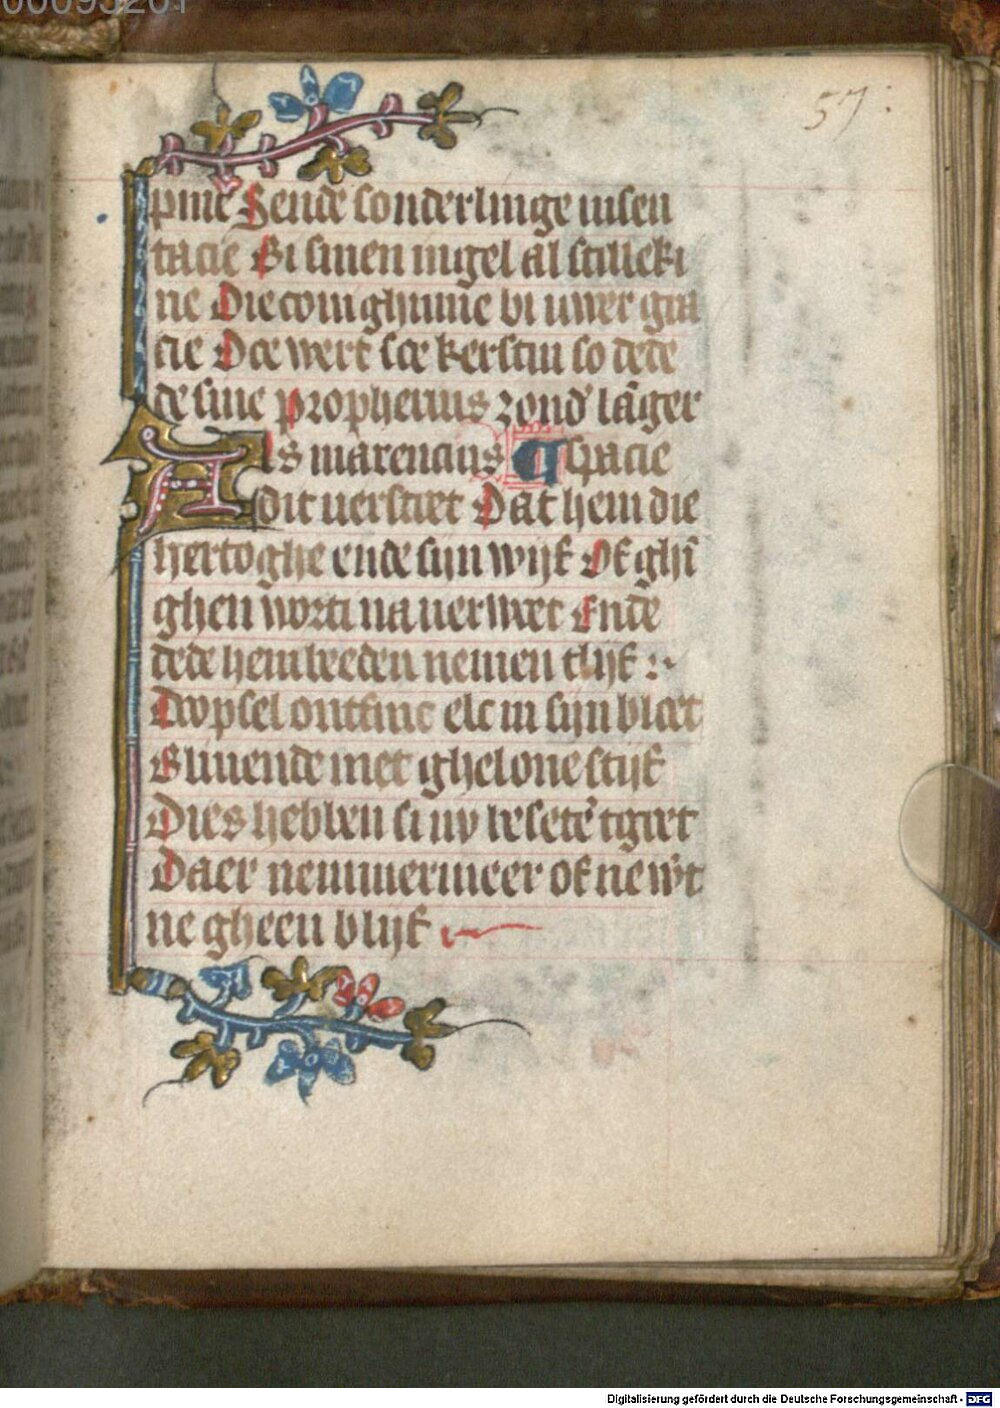 57:
pine Sende sonderlinge visen
tacie Bi sinen ingel al stilleki
ne Die coninghinne bi uwer gra
cie Doe wert sce kerstin so dede
de sine prophetius zond' lāger
As marencius spacie
dit verstaet Dat hem die
hertoghe ende sijn wijf Of ghi
ghen worti na uer woet Ende
dede hem beeden nemen tlijf
Dwpsel ontfinc elc in sijn bloet
Blivende met ghelove stijf
Dies hebben si nv besetē tgoet
Daer nemmermeer of ne w't
ne gheen blijf
Digitalisierung gefördert durch die Deutsche Forschungsgemeinschaft - DFG